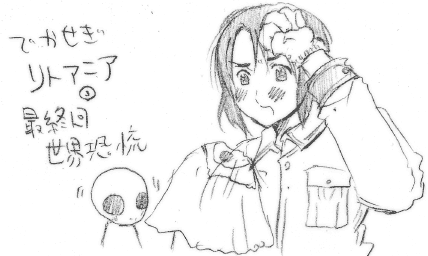 でかせぎ
リトアニア
③
最終回
世界恐慌